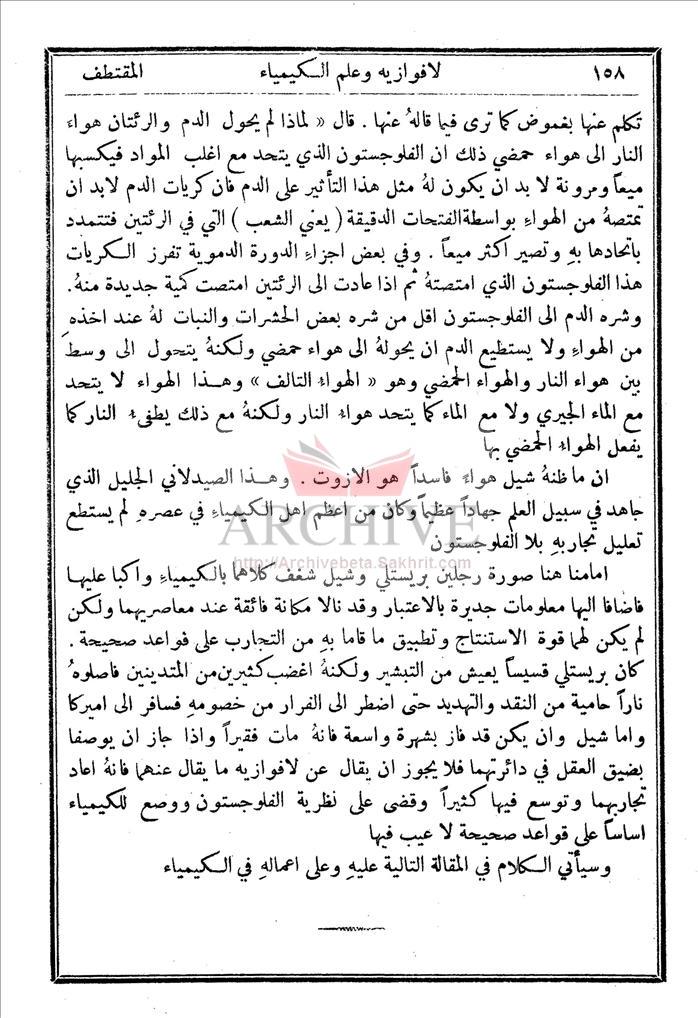 ١٥٨ لافوازيه وعلم الكيمياء المقتطف
تكلم عنها بغموض كما ترى فيما قالهُ عنها . قال « لماذا لم يحول الدم والرئتان هواءَ
النار الى هواء حمضي ذلك ان الفلوجستون الذي يتحد مع اغلب المواد فيكسبها
ميعاً ومرونة لا بد ان يكون لهُ مثل هذا التأثير على الدم فان كريات الدم لابد ان
تمتصهُ من الهواءِ بواسطة الفتحات الدقيقة ( يعني الشعب ) التي في الرئتين فتتمدد
باتحادها بهِ وتصير اكثر ميعاً . وفي بعض اجزاءِ الدورة الدموية تفرز الكريات
هذا الفلوجستون الذي امتصتهُ ثم اذا عادت الى الرئتين امتصت كمية جديدة منهُ.
وشره الدم الى الفلوجستون اقل من شره بعض الحشرات والنبات لهُ عند اخذهِ
من الهواءِ ولا يستطيع الدم ان يحولهُ الى هواء حمضي ولكنهُ يتحول الى وسط
بين هواء النار والهواء الحمضي وهو « الهواء التالف » وهذا الهواء لا يتحد
مع الماء الجيري ولا مع الماء كما يتحد هواء النار ولكنهُ مع ذلك يطفىء النار كما
يفعل الهواء الحمضي بها
ان ما ظنهُ شيل هواءً فاسداً هو الازوت . وهذا الصيدلاني الجليل الذي
جاهد في سبيل العلم جهاداً عظيماً وكان من اعظم اهل الكيمياءِ في عصرهِ لم يستطع
تعليل تجاربهِ بلا الفلوجستون
امامنا هنا صورة رجلين بريستلي وشيل شغف كلاهما بالكيمياءِ واكبا عليها
فاضافا اليها معلومات جديرة بالاعتبار وقد نالا مكانة فائقة عند معاصريهما ولكن
لم يكن لهما قوة الاستنتاج وتطبيق ما قاما بهِ من التجارب على قواعد صحيحة .
كان بريستلي قسيساً يعيش من التبشير ولكنهُ اغضب كثيرين من المتدينين فاصلوهُ
ناراً حامية من النقد والتهديد حتى اضطر الى الفرار من خصومهِ فسافر الى اميركا
واما شيل وان يكن قد فاز بشهرة واسعة فانهُ مات فقيراً واذا جاز ان يوصفا
بضيق العقل في دائرتهما فلا يجوز ان يقال عن لافوازيه ما يقال عنهما فانهُ اعاد
تجاربهما وتوسع فيها كثيراً وقضى على نظرية الفلوجستون ووضع للكيمياء
اساساً على قواعد صحيحة لا عيب فيها
وسيأتي الكلام في المقالة التالية عليهِ وعلى اعمالهِ في الكيمياء
ARCHIVE
http://Archivebeta.Sakhrit.com